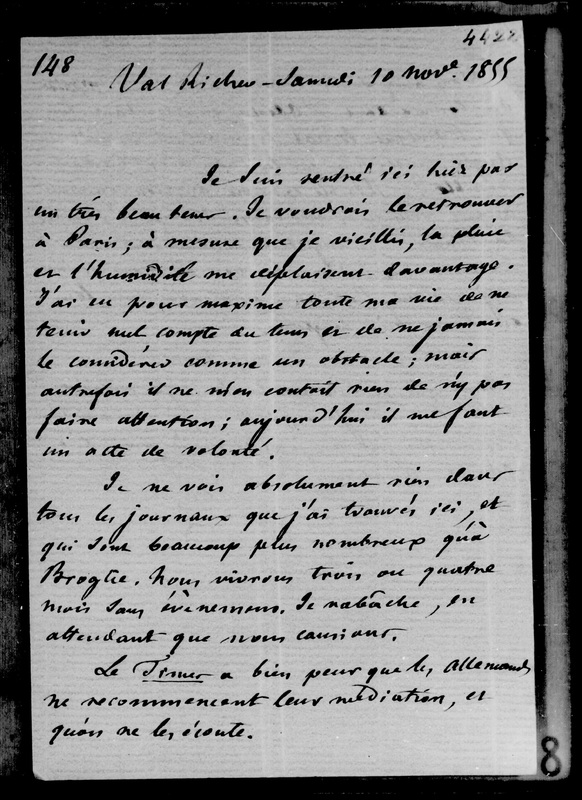 148
442
Val Richer - Samedi 10 nov.e 1855
Je suis rentré ici hier par
un très beau tems. Je voudrois le retrouver
à Paris ; à mesure que je vieillis, la pluie
et l'humidité me déplaisent davantage.
J'ai eu pour maxime toute ma vie de ne
tenir nul compte du tems et de ne jamais
le considérer comme un obstacle ; mais
autrefois il ne m'en coutait rien de n'y pas
faire attention ; aujourd'hui il me faut
un acte de volonté.
Je ne vois absolument rien dans
tous les journaux que j'ai trouvés ici, et
qui sont beaucoup plus nombreux qu'à
Broglie. Nous vivrons trois ou quatre
mois sans évènemens. Je rabâche, en
attendant que nous causions.
Le Times a bien peur que les Allemands
ne recommencent leur médiation, et
qu'on ne les écoute.
8